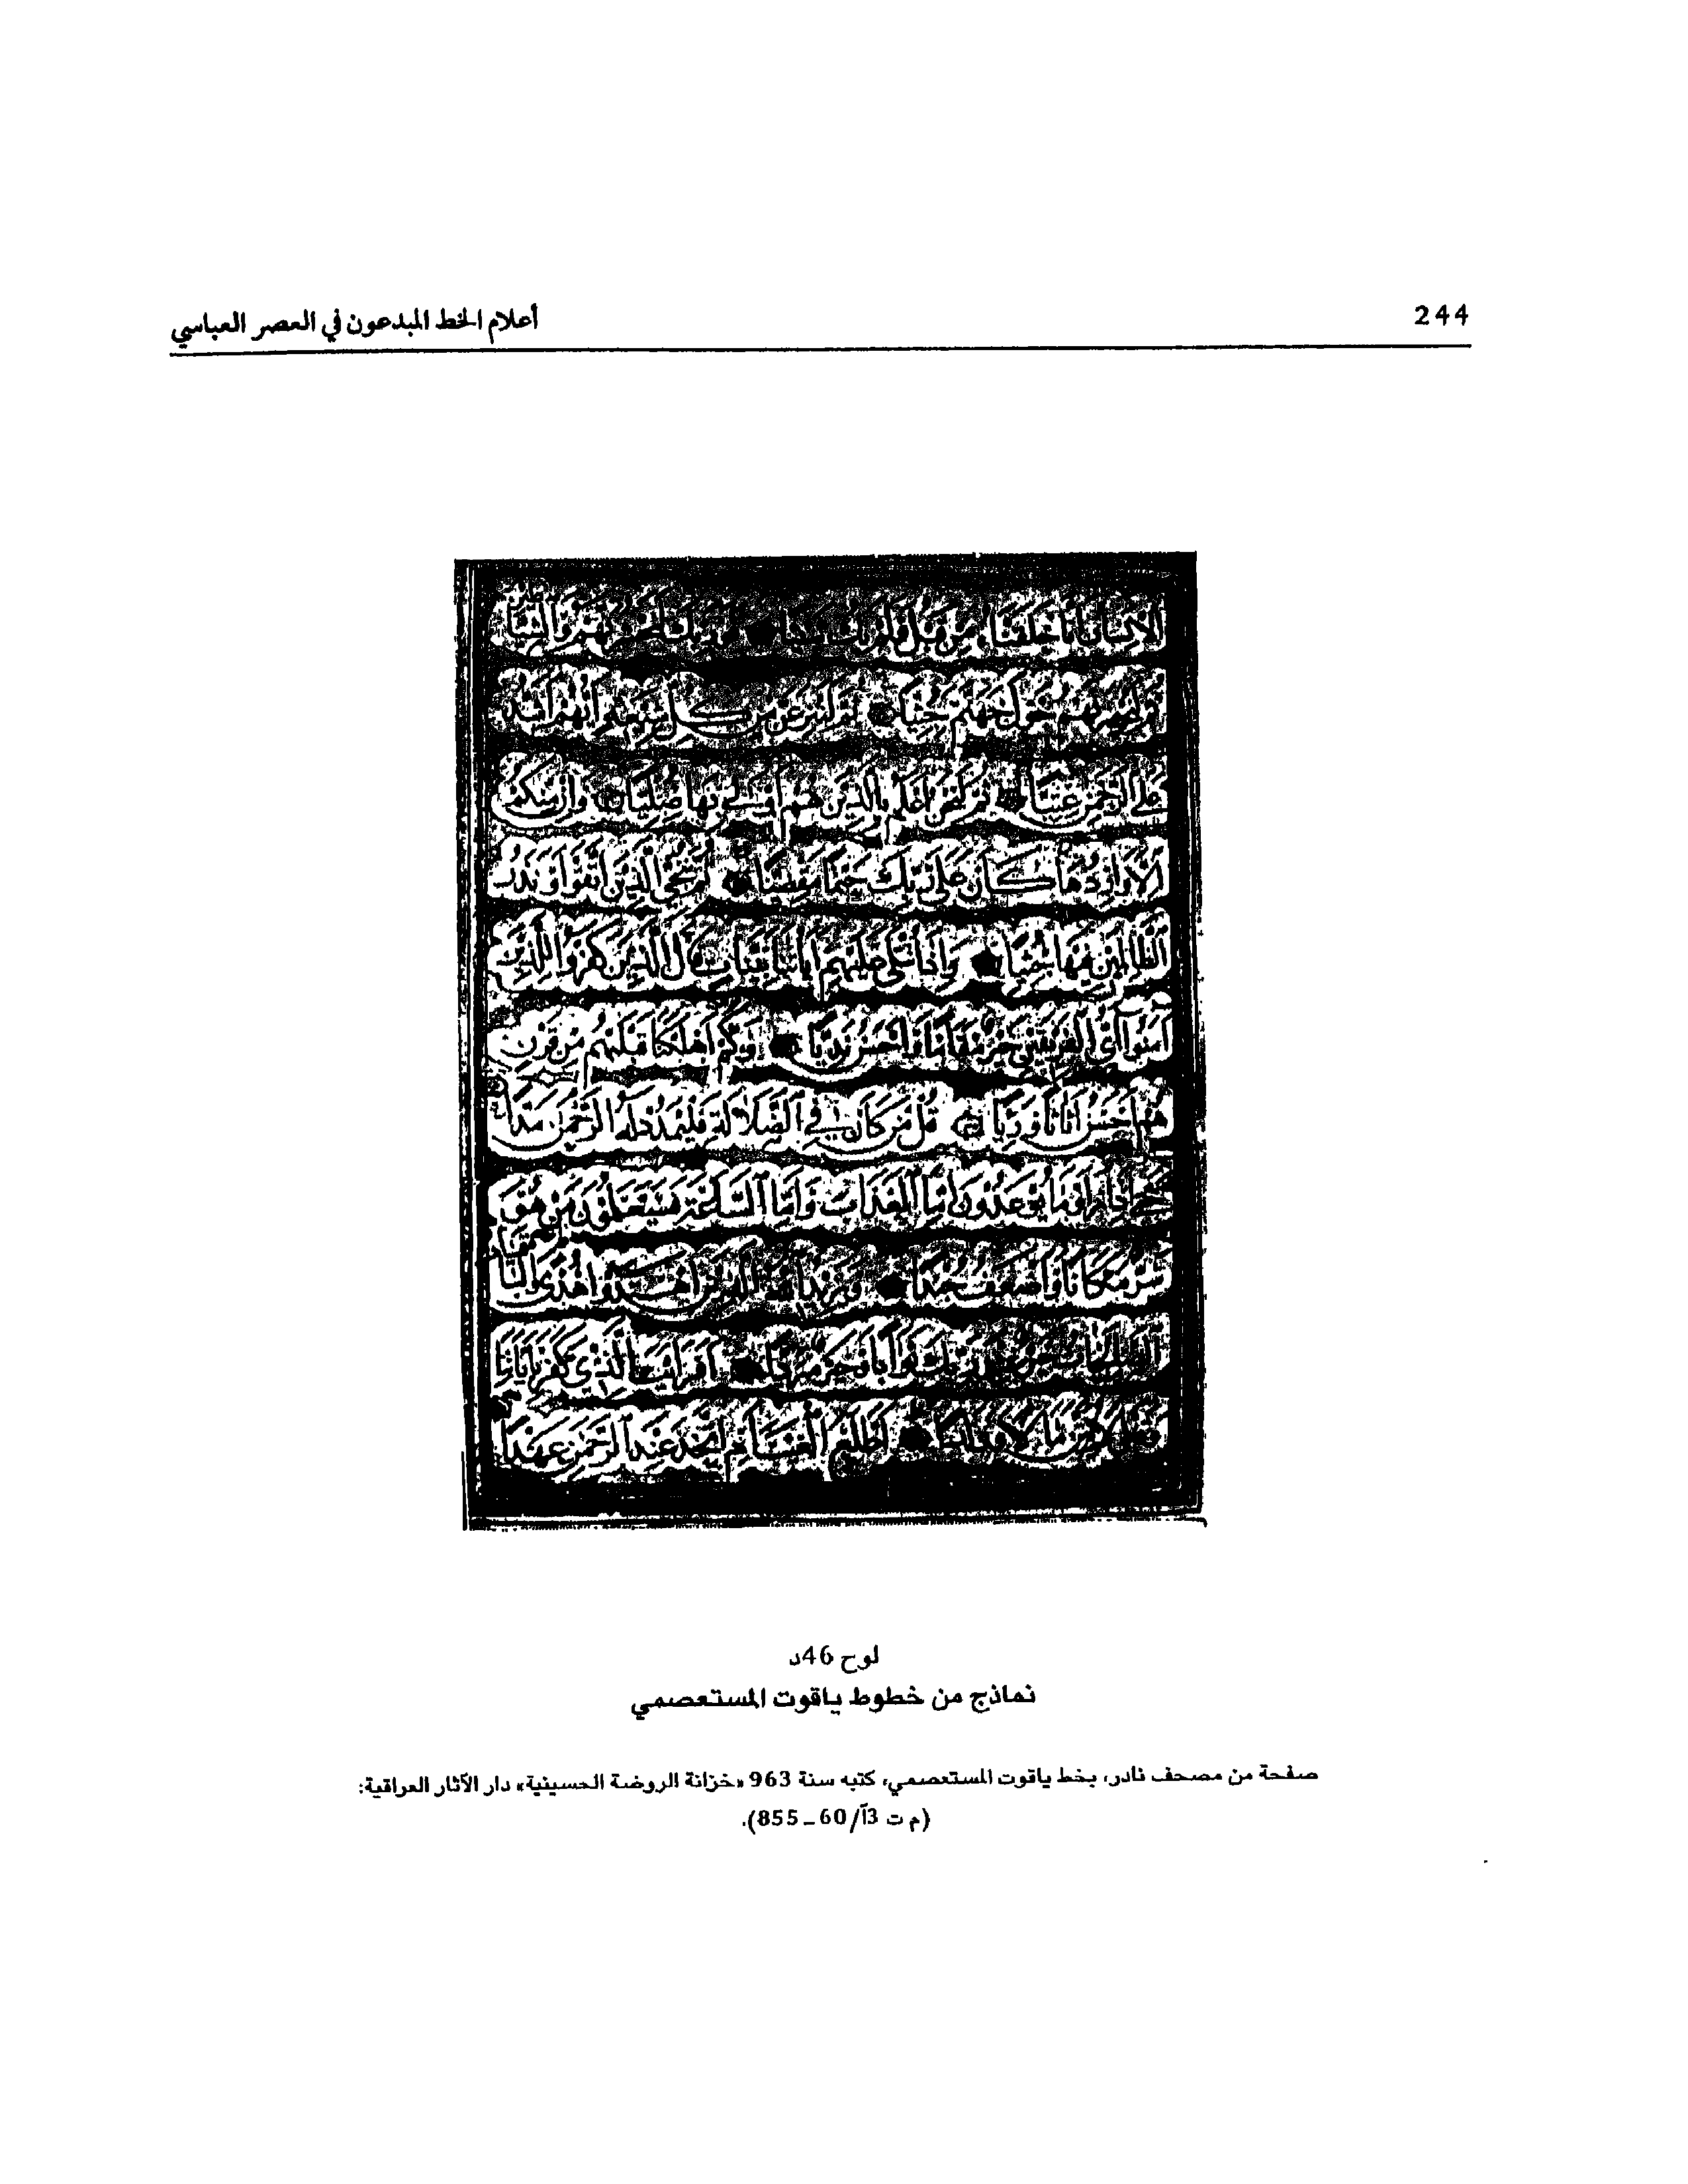 244
أعلام الخط المبدعون في العصر العباسي
الإنسان أنا خلقناه من قبل ولم يك شيئا فوربك لنحشرنهم والشياطين
ثم لنحضرنهم حول جهنم جثيا ثم لننزعن من كل شيعة أيهم أشد
على الرحمن عتيا ثم لنحن أعلم بالذين هم أولى بها صليا وإن منكم
إلا واردها كان على ربك حتما مقضيا ثم ننجي الذين اتقوا ونذر
الظالمين فيها جثيا وإذا تتلى عليهم آياتنا بينات قال الذين كفروا للذين
آمنوا أي الفريقين خير مقاما وأحسن نديا وكم أهلكنا قبلهم من قرن
هم أحسن أثاثا ورئيا قل من كان في الضلالة فليمدد له الرحمن مدا
حتى إذا رأوا ما يوعدون إما العذاب وإما الساعة فسيعلمون من هو
شر مكانا وأضعف جندا ويزيد الله الذين اهتدوا هدى والباقيات
الصالحات خير عند ربك ثوابا وخير مردا أفرأيت الذي كفر بآياتنا
وقال لأوتين مالا وولدا أطلع الغيب أم اتخذ عند الرحمن عهدا
لوح 46د
نماذج من خطوط ياقوت المستعصمي
صفحة من مصحف نادر، بخط ياقوت المستعصمي، كتبه سنة 963 «خزانة الروضة الحسينية» دار الآثار العراقية:
(م ت 3آ/60 ـ 855).